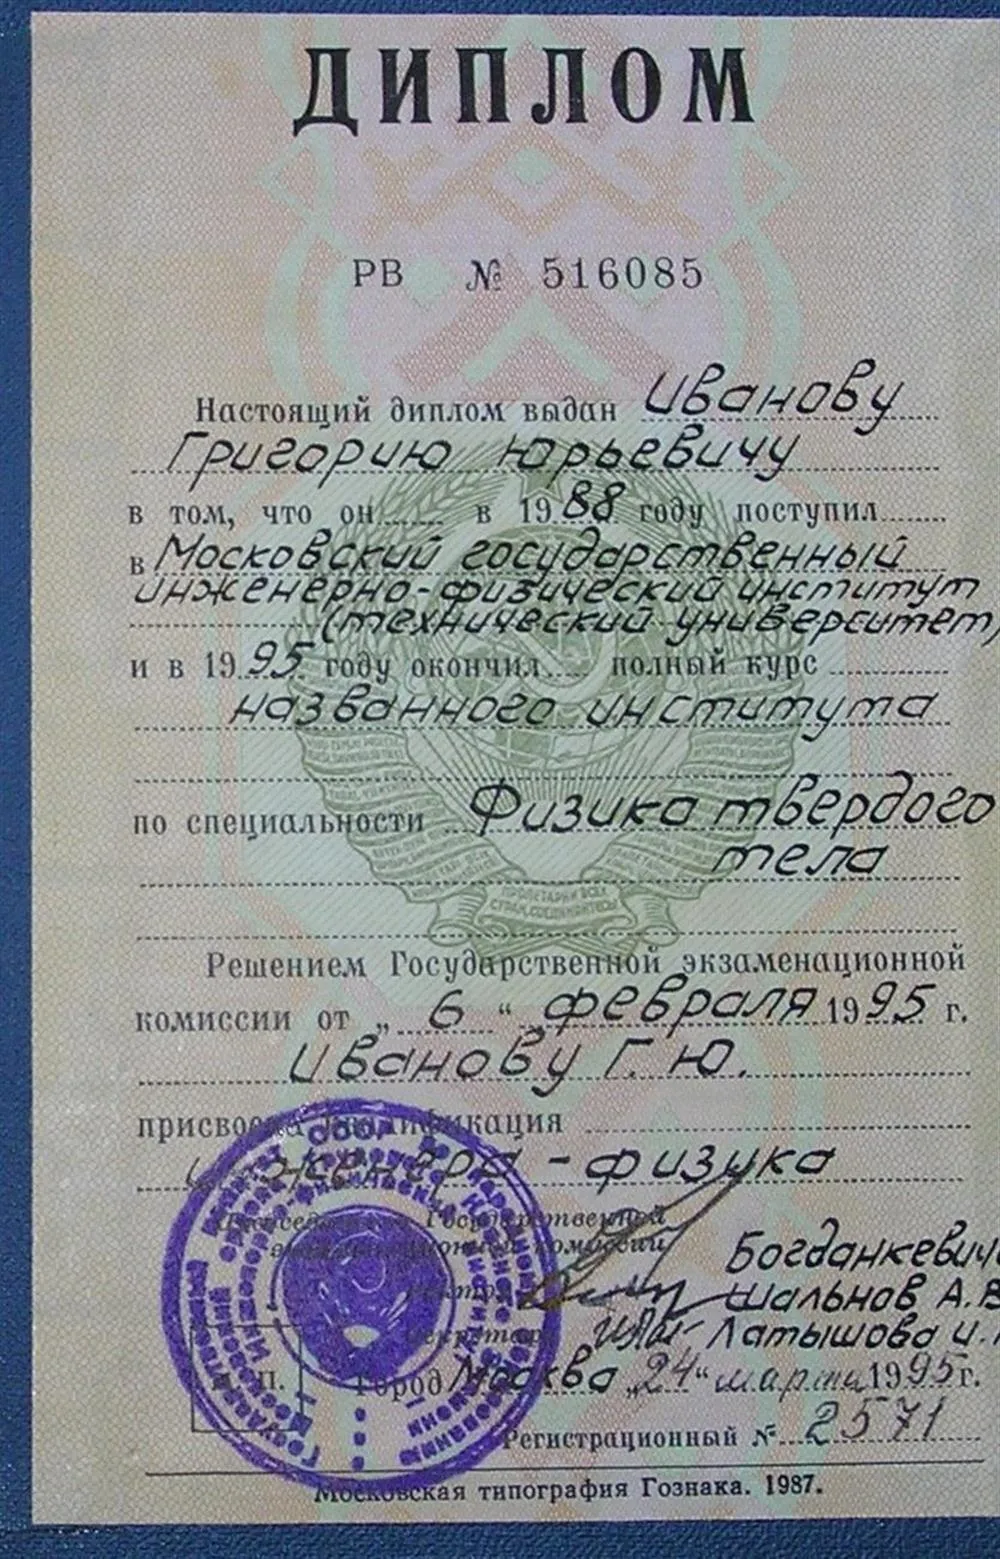 ДИПЛОМ
РВ № 516085
Настоящий диплом выдан Иванову
Григорию Юрьевичу
в том, что он в 1988 году поступил
в Московский государственный
инженерно-физический институт
(технический университет)
и в 1995 году окончил полный курс
названного института
по специальности Физика твердого
тела
Решением Государственной экзаменационной
комиссии от „6“ февраля 1995 г.
Иванову Г. Ю.
присвоена квалификация
инженера-физика
Председатель Государственной
экзаменационной комиссии
Богданкевич
Ректор Шальнов А.В
Секретарь Латышова
Город Москва „24“ марта 1995 г.
М. П.
Регистрационный № 2571
Московская типография Гознака. 1987.